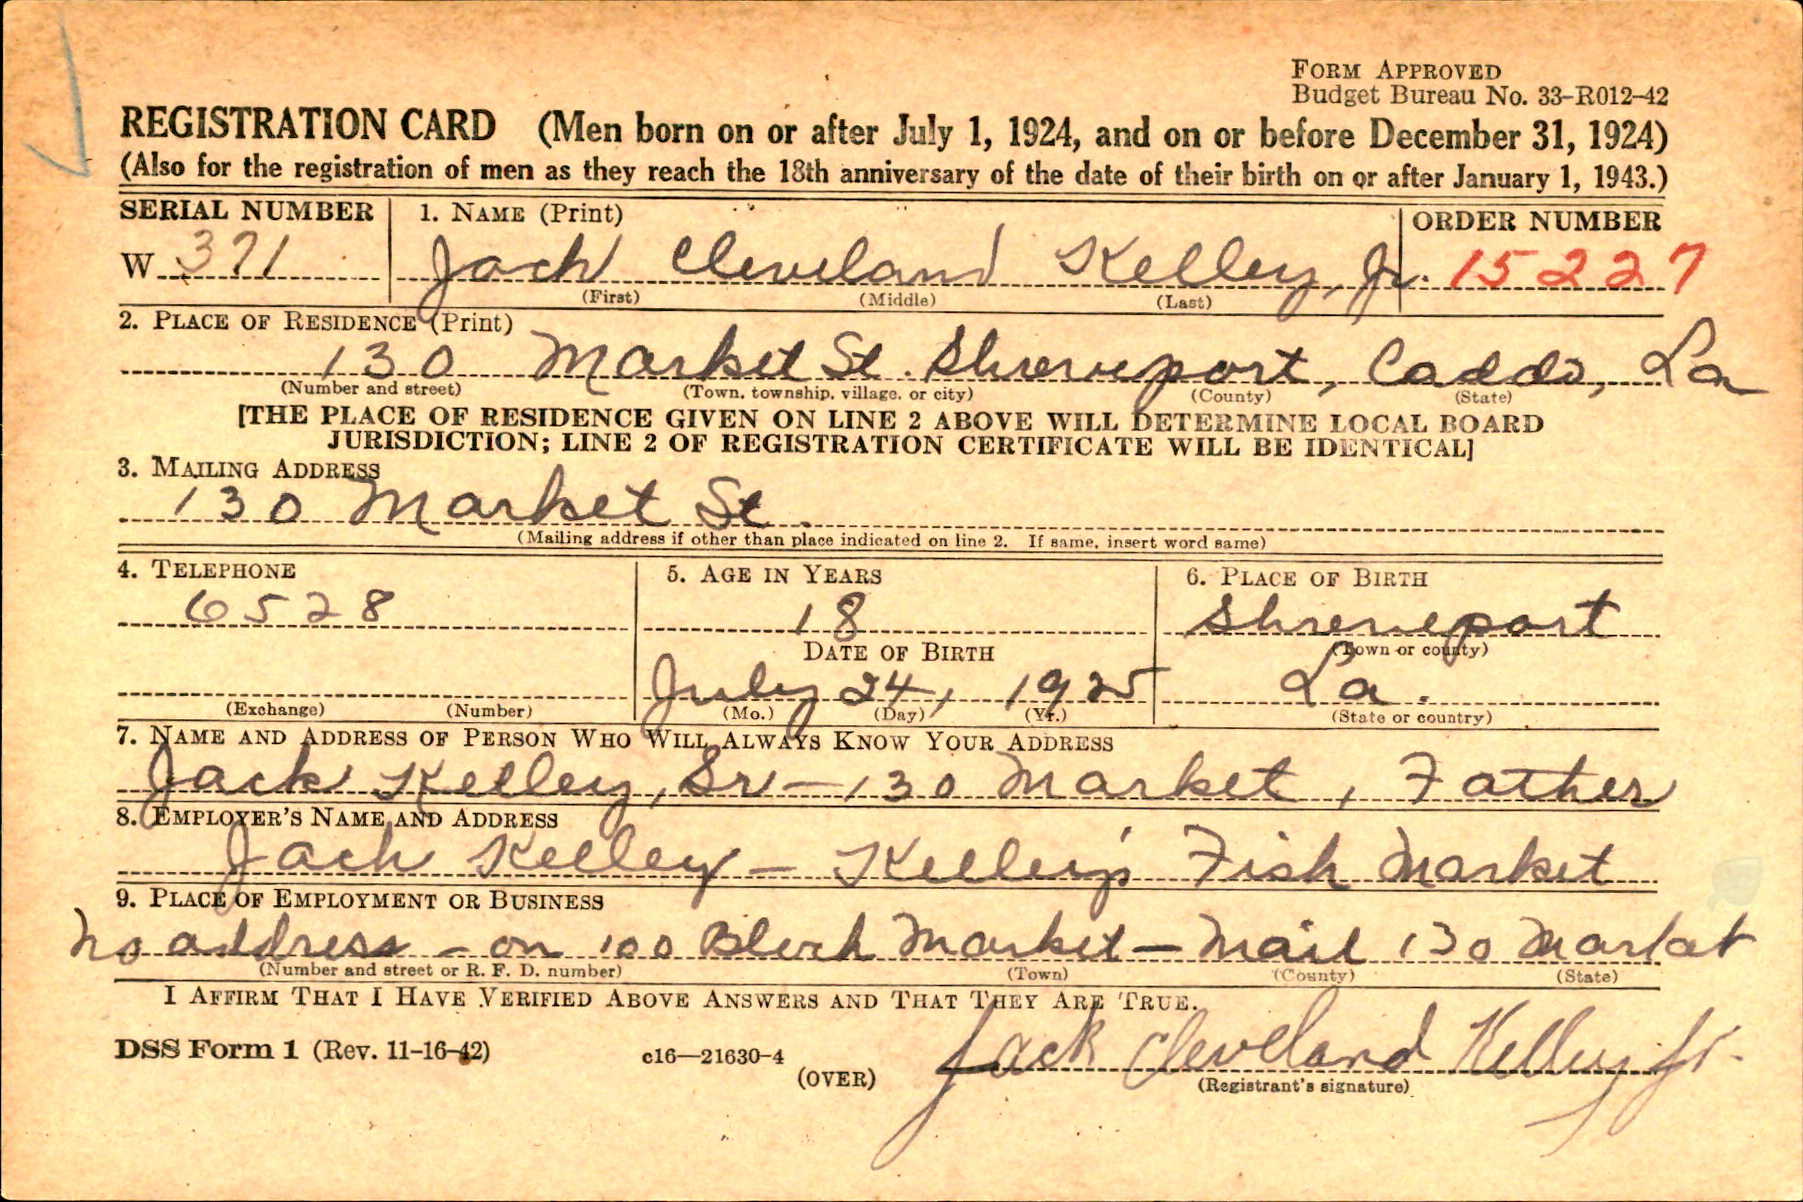 FORM APPROVED
Budget Bureau No. 33-R012-42
REGISTRATION CARD (Men born on or after July 1, 1924, and on or before December 31, 1924)
(Also for the registration of men as they reach the 18th anniversary of the date of their birth on or after January 1, 1943.)
SERIAL NUMBER 1. NAME (Print) ORDER NUMBER
W 371 Jack Cleveland Kelley, Jr. 15227
(First) (Middle) (Last)
2. PLACE OF RESIDENCE (Print)
130 Market St. Shreveport, Caddo, La
(Number and street) (Town, township, village, or city) (County) (State)
[THE PLACE OF RESIDENCE GIVEN ON LINE 2 ABOVE WILL DETERMINE LOCAL BOARD
JURISDICTION; LINE 2 OF REGISTRATION CERTIFICATE WILL BE IDENTICAL]
3. MAILING ADDRESS
130 Market St.
(Mailing address if other than place indicated on line 2. If same, insert word same)
4. TELEPHONE 5. AGE IN YEARS 6. PLACE OF BIRTH
6528 18 Shreveport
DATE OF BIRTH (Town or county)
July 24, 1925 La.
(Exchange) (Number) (Mo.) (Day) (Yr.) (State or country)
7. NAME AND ADDRESS OF PERSON WHO WILL ALWAYS KNOW YOUR ADDRESS
Jack Kelley, Sr - 130 Market, Father
8. EMPLOYER'S NAME AND ADDRESS
Jack Kelley - Kelley's Fish Market
9. PLACE OF EMPLOYMENT OR BUSINESS
No address - on 100 Block Market - Mail 130 Market
(Number and street or R. F. D. number) (Town) (County) (State)
I AFFIRM THAT I HAVE VERIFIED ABOVE ANSWERS AND THAT THEY ARE TRUE.
DSS Form 1 (Rev. 11-16-42) c16—21630-4 Jack Cleveland Kelley Jr.
(OVER) (Registrant's signature)